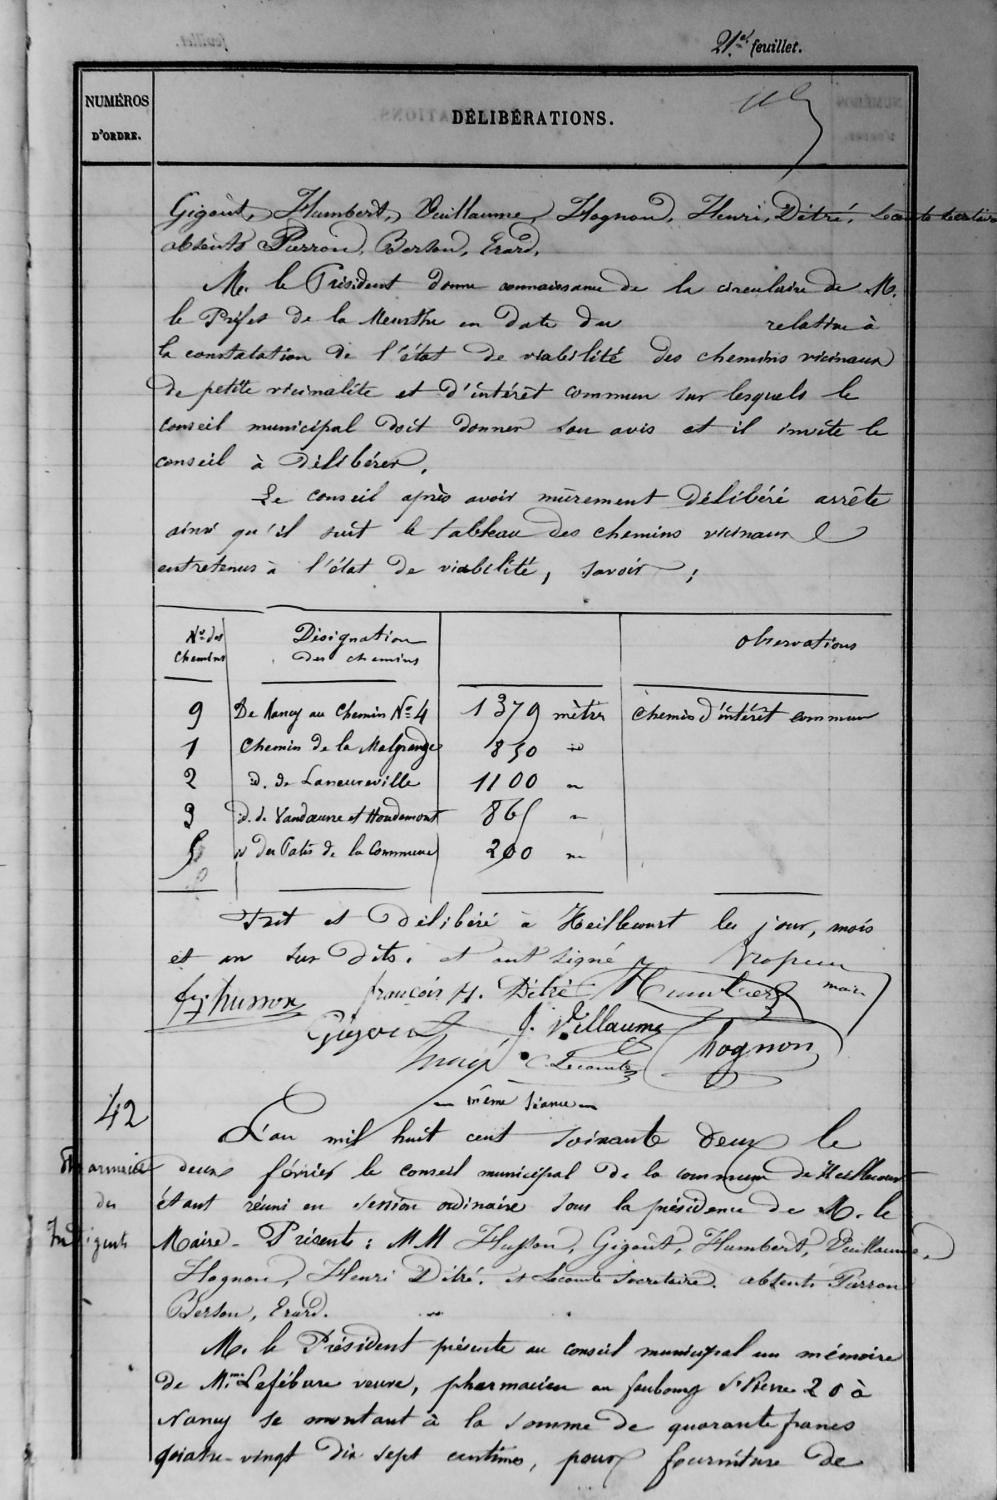 21e feuillet.
NUMÉROS
D'ORDRE.
DÉLIBÉRATIONS.
Gigout, Humbert, Vuillaume, Hognon, Henri, Détré, Lecomte secrétaire
absents Pierron, Berson, Erard.
M. le Président donne connaissance de la circulaire de M.
le Préfet de la Meurthe en date du relative à
la constatation de l'état de viabilité des chemins vicinaux
de petite vicinalité et d'intérêt commun sur lesquels le
conseil municipal doit donner son avis et il invite le
conseil à délibérer.
Le conseil après avoir mûrement délibéré arrête
ainsi qu'il suit le tableau des chemins vicinaux
entretenus à l'état de viabilité, savoir ;
Nos des
Chemins
Désignation
des chemins
Observations
9 De Nancy au Chemin No 4 1379 mètres chemin d'intérêt commun
1 Chemin de la Malgrange 850 id
2 id. de Laneuveville 1100 "
3 id. de Vandœuvre et Houdemont 865 "
5 id du Patis de la Commune 200 "
Fait et délibéré à Heillecourt les jour, mois
et an sur dits. et ont signé
maire
fs husson françois H. Détré Humbert
Gigout J. Vuillaume hognon
Lecomte
même séance
42
L'an mil huit cent soixante deux le
Pharmacie deux février le conseil municipal de la commune de Heillecourt
des étant réuni en session ordinaire sous la présidence de M. le
Indigents Maire - Présents : MM Husson, Gigout, Humbert, Vuillaume,
Hognon, Henri Détré. et Lecomte Secretaire. absents Pierron
Berson, Erard.
M. le Président présente au conseil municipal un mémoire
de Mme Lefébure veuve, pharmacien au faubourg St Pierre 20 à
Nancy se montant à la somme de quarante francs
quatre-vingt dix sept centimes, pour fourniture de